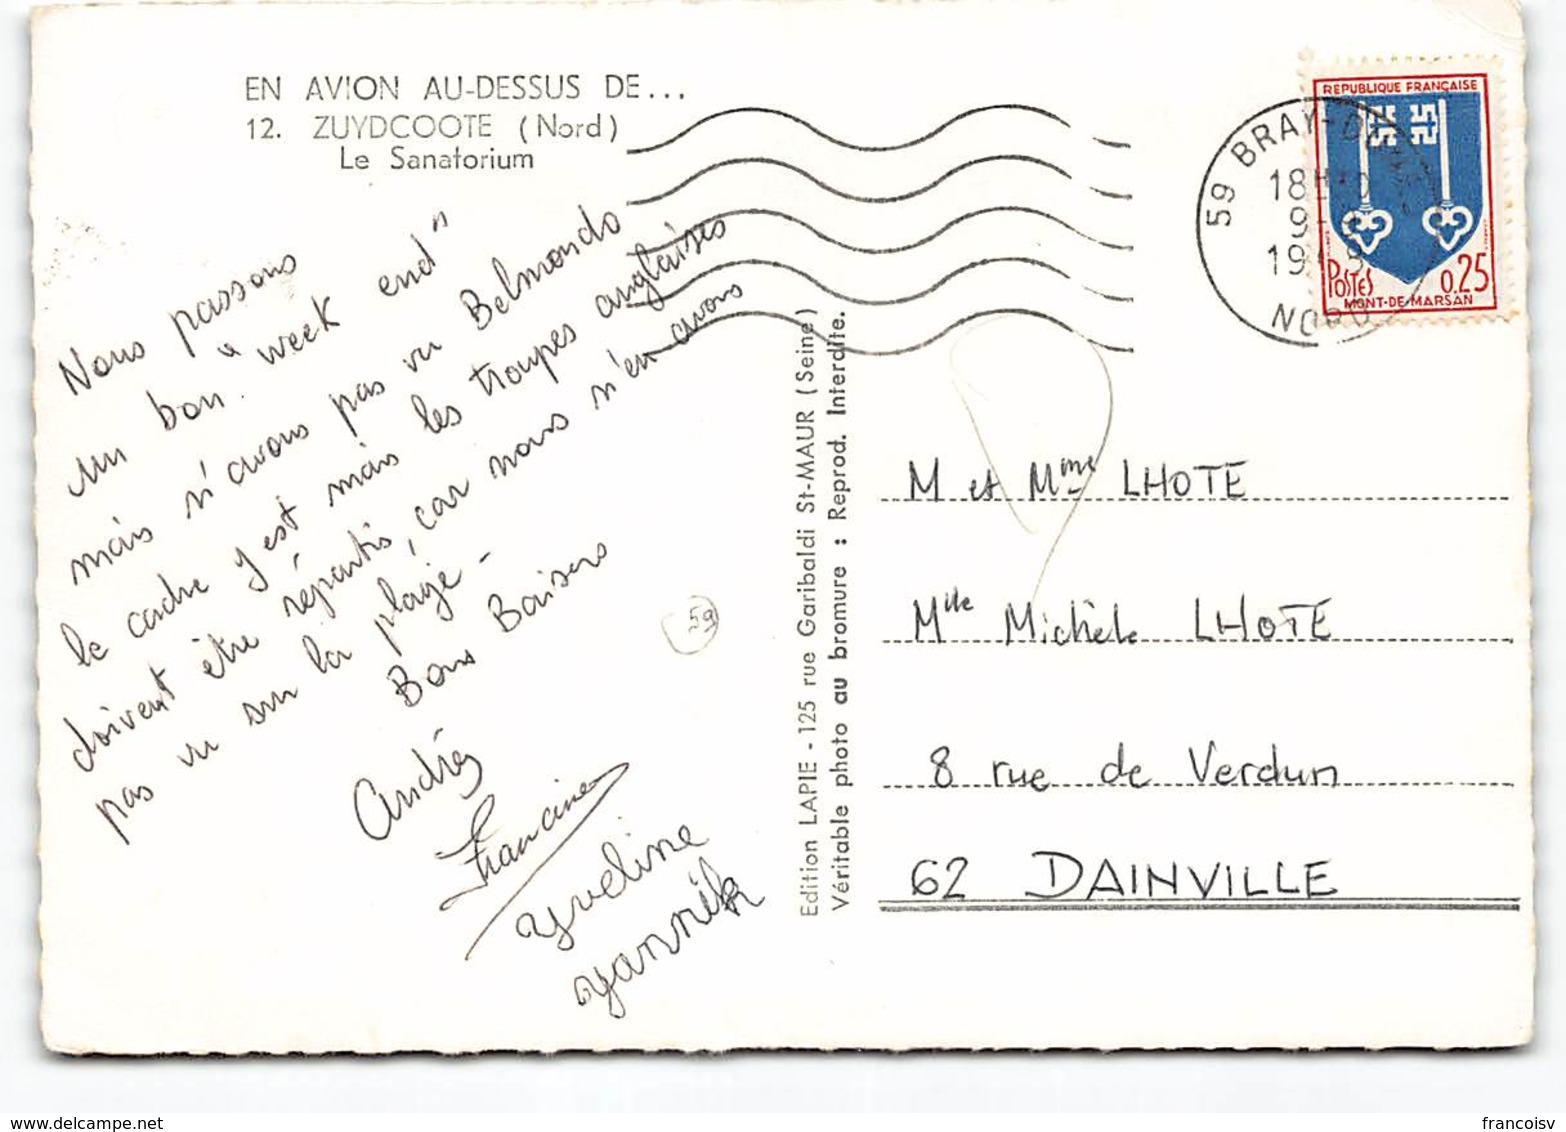 EN AVION AU-DESSUS DE...
12. ZUYDCOOTE (Nord)
Le Sanatorium
Nous passons
un bon "week end"
mais n'avons pas vu Belmondo
le cadre y est mais les troupes anglaises
doivent être répartis, car nous n'en avons
pas vu sur la plage -
Bons Baisers
André
Francine
Yveline
Yannick
59
Edition LAPIE - 125 rue Garibaldi St-MAUR (Seine)
Véritable photo au bromure : Reprod. Interdite.
59 BRAY-DUNES
18H
9-
19
NORD
REPUBLIQUE FRANÇAISE
POSTES 0,25
MONT-DE-MARSAN
M et Mme LHOTE
Mlle Michèle LHOTE
8 rue de Verdun
62 DAINVILLE
francoisv